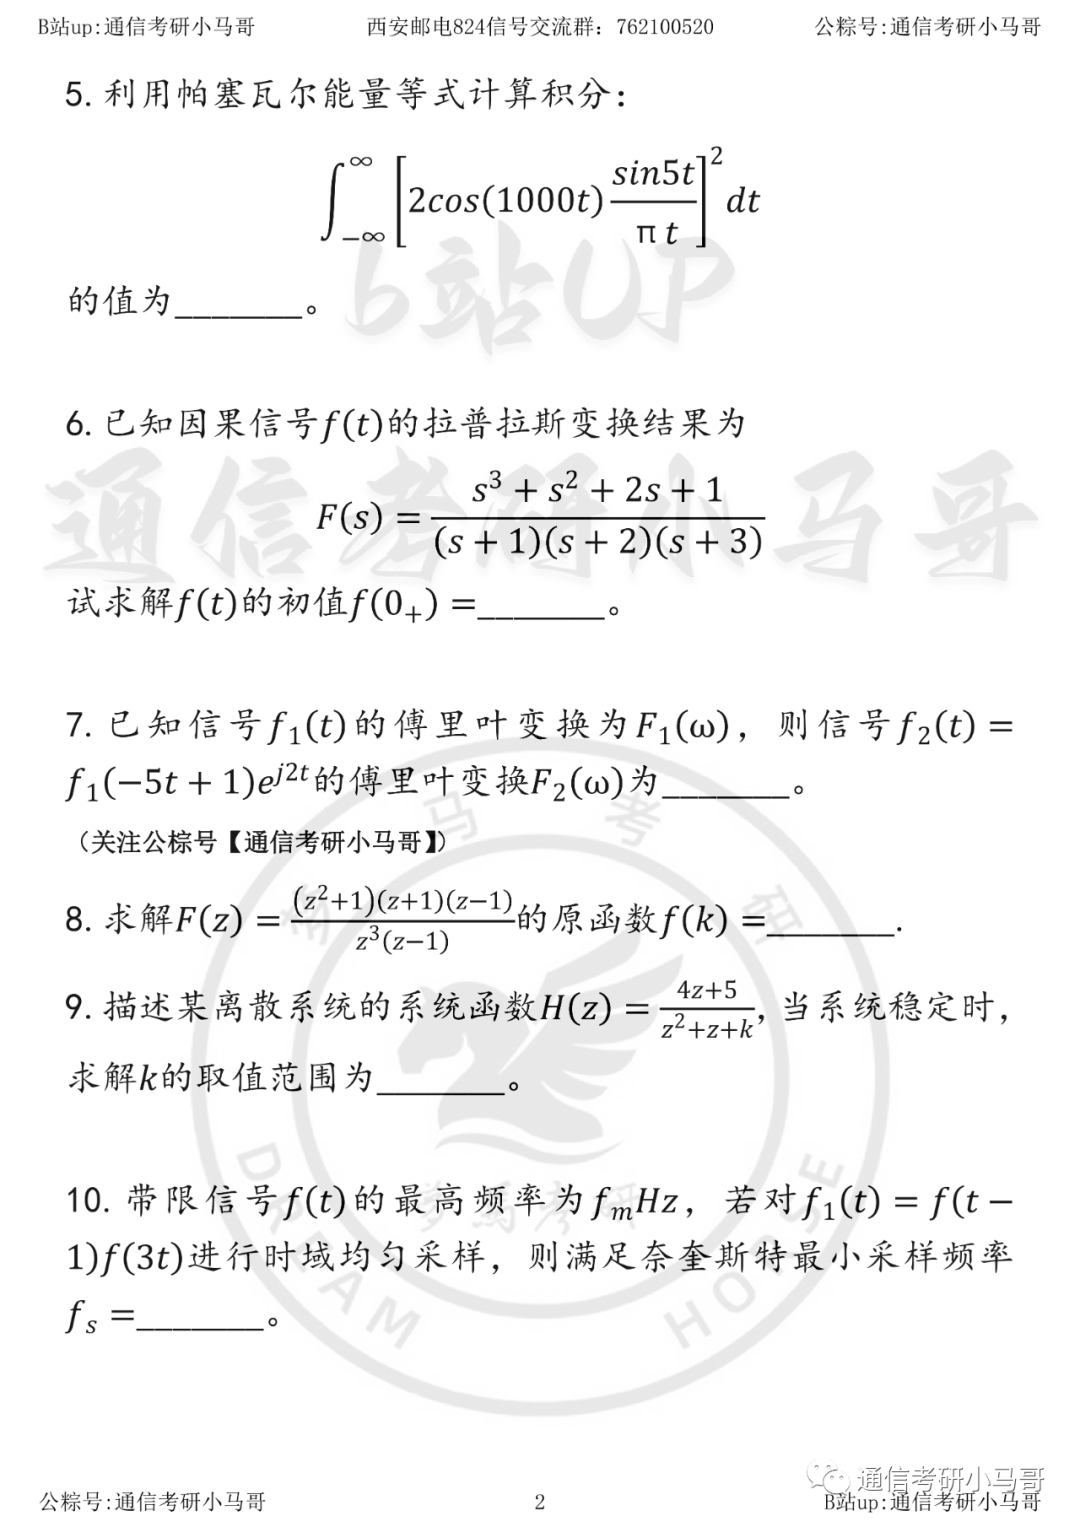 B站up:通信考研小马哥 西安邮电824信号交流群：762100520 公粽号:通信考研小马哥
5. 利用帕塞瓦尔能量等式计算积分：
∫_{-∞}^{∞} [2cos(1000t) \frac{sin5t}{π t}]^2 dt
的值为_______。
b站UP
6. 已知因果信号f(t)的拉普拉斯变换结果为
通信考研小马哥
F(s) = \frac{s^3 + s^2 + 2s + 1}{(s + 1)(s + 2)(s + 3)}
试求解f(t)的初值f(0_+) =_______。
7. 已知信号f_1(t)的傅里叶变换为F_1(ω)，则信号f_2(t) =
f_1(−5t + 1)e^{j2t}的傅里叶变换F_2(ω)为_______。
（关注公棕号【通信考研小马哥】）
8. 求解F(z) = \frac{(z^2+1)(z+1)(z−1)}{z^3(z−1)}的原函数f(k) =_______.
9. 描述某离散系统的系统函数H(z) = \frac{4z+5}{z^2+z+k}, 当系统稳定时，
求解k的取值范围为_______。
10. 带限信号f(t)的最高频率为f_mHz，若对f_1(t) = f(t −
1)f(3t)进行时域均匀采样，则满足奈奎斯特最小采样频率
f_s =_______。
梦马考研
梦馬考研
DREAM HORSE
通信考研小马哥
公粽号:通信考研小马哥 2 B站up:通信考研小马哥